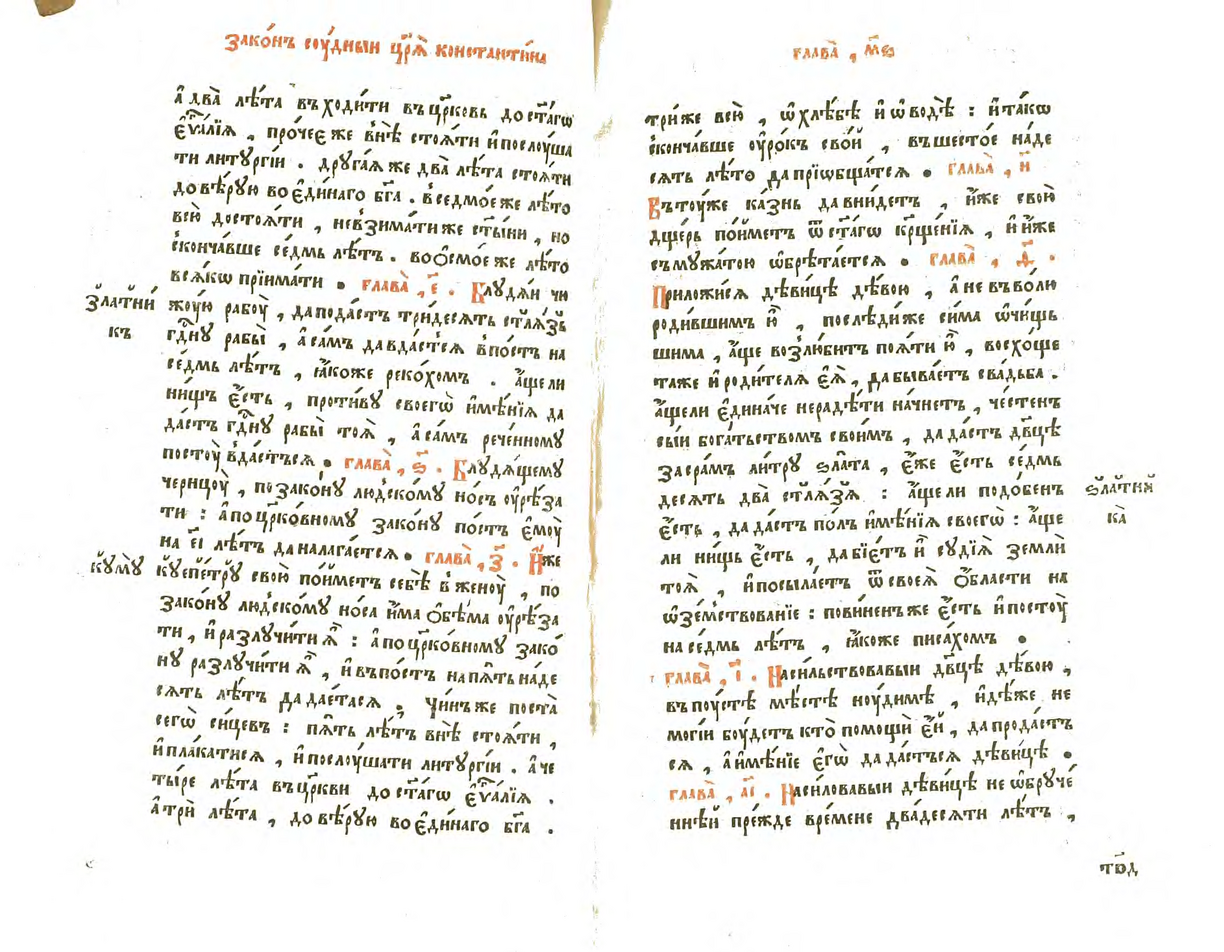 Зако́нъ сꙋ́дныи цр҃ѧ̀ константи́на
а҆ два̀ лѣ́та въходи́ти въ цр҃ковь до ст҃а́гѡ
є҆ѵⷢ҇а́лїѧ , про́чеє же внѣ̀ стоѧ́ти и҆ послоу́ша
ти литꙋргі́и . дрꙋга́ѧ же два̀ лѣ́та стоѧ́ти
до вѣ́рꙋю во є҆ди́наго бг҃а . в седмо́е же лѣ́то
всю̀ достоѧ́ти , не взима́ти же ст҃ы́ни , но
скѡнча́вше се́дмь лѣ́тъ . во ѻ҆смо́е же лѣ́то
всѧ́кѡ прїима́ти . глава̀ , є҃ . Блꙋдѧ́и чю
злат҃ни́
жꙋ́ю рабоу̀ , да пода́стъ три́десѧть стлѧ́зь
къ
гд҃нꙋ рабы̀ , а҆ са́мъ да вда́стсѧ в по́стъ на
се́дмь лѣ́тъ , ꙗ҆́коже реко́хомъ . а҆́ще ли
ни́щъ є҆́сть , проти́вꙋ своегѡ̀ и҆мѣ́нїѧ да
да́стъ гд҃нꙋ рабы̀ тоѧ̀ , а҆ са́мъ рече́нномꙋ
постоу̀ вда́стьсѧ . глава̀ , ѕ҃ . Блꙋдѧ́щемꙋ
черни́цоу , по зако́нꙋ лю́дскомꙋ но́съ оу҆рѣ́за
ти : а҆ по цр҃ко́вномꙋ зако́нꙋ по́стъ є҆моу̀
на є҃і лѣ́тъ да налага́етсѧ . глава̀ , з҃ . И҆́же
кꙋмꙋ̀
кꙋпе́трꙋ свою̀ по́йметъ себѣ̀ в женоу̀ , по
зако́нꙋ лю́дскомꙋ но́са и҆́ма ѻ҆бѣ́ма оу҆рѣ́за
ти , и҆ разлꙋчи́ти ѧ҆̀ : а҆ по цр҃ко́вномꙋ зако́
нꙋ разлꙋчи́ти ѧ҆̀ , и҆ въ по́стъ на пѧ́ть на́де
сѧть лѣ́тъ да да́етсѧ , чи́нъ же поста̀
сегѡ̀ си́цевъ : пѧ́ть лѣ́тъ внѣ̀ стоѧ́ти ,
и҆ пла́катисѧ , и҆ послоу́шати литꙋргі́и . а҆ че
ты́ре лѣ́та въ цр҃кви до ст҃а́гѡ є҆ѵⷢ҇а́лїѧ .
а҆ трѝ лѣ́та , до вѣ́рꙋю во є҆ди́наго бг҃а .
глава̀ , м҃ѳ
три́же всю̀ , ѡ҆ хлѣ́бѣ и҆ ѡ҆ водѣ̀ : и҆ та́кѡ
скѡнча́вше оу҆ро́къ сво́й , въ шесто́е на́де
сѧть лѣ́то да прїѡбща́тсѧ . глава̀ , и҃
Въ тоу́же ка́знь да вни́детъ , и҆́же свою̀
дще́рь по́йметъ ѿ ст҃а́гѡ крщ҃е́нїѧ , и҆ и҆́же
съ мꙋжа́тою ѡ҆брѣ́таетсѧ . глава̀ , ѳ҃ .
Приложи́сѧ дѣви́цѣ дѣ́вою , а҆ не въ во́лю
роди́вшимъ ю҆̀ , послѣди́же си́ма ѡ҆чи́щь
шима , а҆́ще возлю́битъ поѧ́ти ю҆̀ , восхо́ще
таже и҆ роди́телѧ є҆ѧ̀ , да быва́етъ сва́дьба .
а҆́ще ли є҆дина́че неради́ти на́чнетъ , че́стенъ
сы́и бога́тьствомъ свои́мъ , да да́стъ дв҃цѣ
за сра́мъ ли́трꙋ ѕла́та , є҆́же є҆́сть се́дмь
десѧтъ два̀ стлѧ́зѧ : а҆́ще ли подо́бенъ
ѕла́тни
є҆́сть , да да́стъ по́лъ и҆мѣ́нїѧ своегѡ̀ : а҆́ще
ка̀
ли ни́щь є҆́сть , да бїе́тъ и҆̀ сꙋдїѧ̀ землѝ
тоѧ̀ , и҆ посыла́етъ ѿ своеѧ̀ ѻ҆́бласти на
ѡ҆зе́мствованїе : пови́ненъ же є҆́сть и҆ постоу̀
на се́дмь лѣ́тъ , ꙗ҆́коже писа́хомъ .
глава̀ , і҃ . Наси́льствовавыи дв҃цѣ дѣ́вою ,
въ поу́стѣ мѣ́стѣ ноу́димѣ , и҆дѣ́же не
могі́и боу́детъ кто̀ помощѝ є҆́й , да продас́тъ
сѧ , а҆ и҆мѣ́нїе є҆гѡ̀ да да́стьсѧ дѣви́цѣ .
глава̀ , а҃і . Наси́ловавыи дѣви́цѣ не ѡ҆брꙋче́
ннѣ́й пре́жде вре́мене два́десѧти лѣ́тъ ,